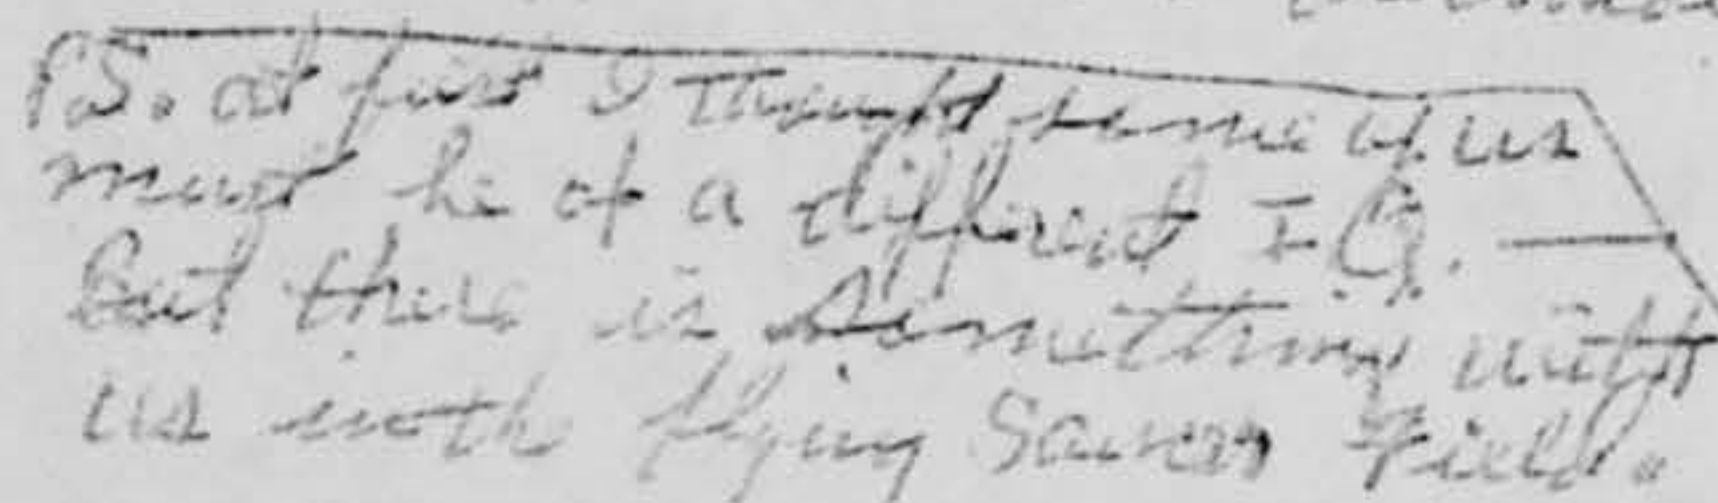 P.S. at first I thought some of us
must be of a different I.Q. —
But there is something with
us in the flying Saucer Field.